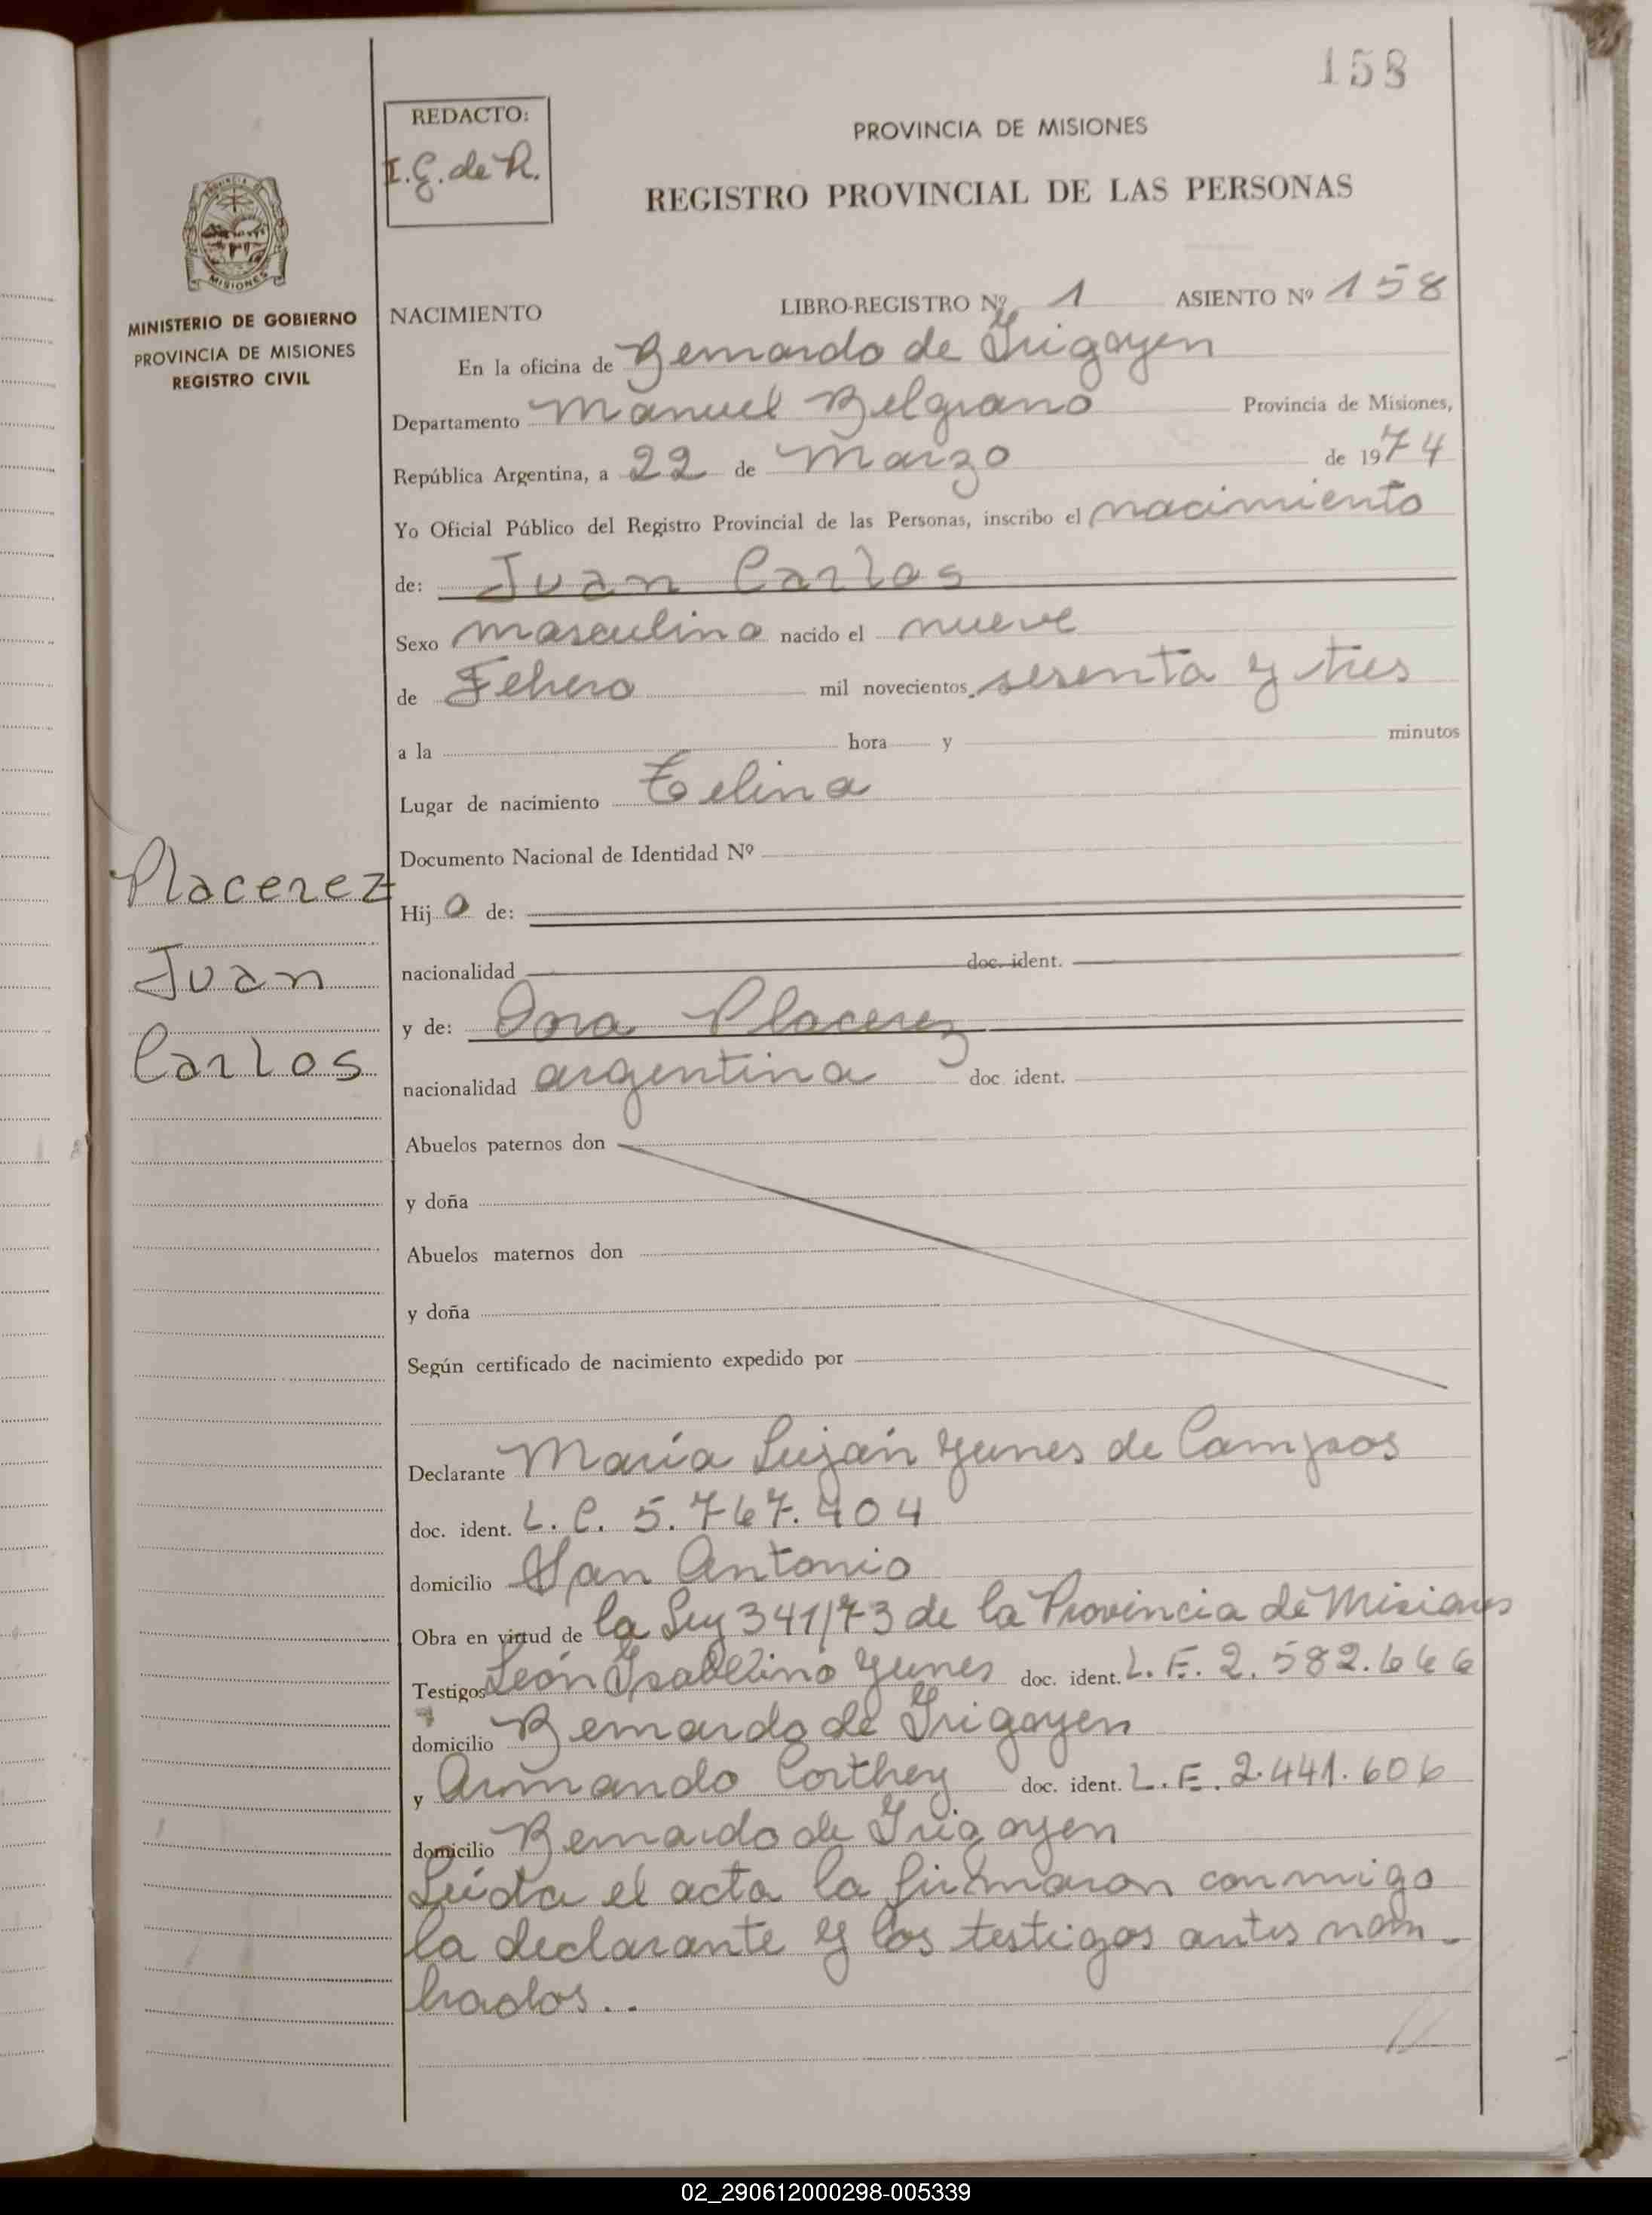 158
REDACTO:
I. G. de R.
PROVINCIA DE MISIONES
REGISTRO PROVINCIAL DE LAS PERSONAS
PROVINCIA DE
MISIONES
MINISTERIO DE GOBIERNO
PROVINCIA DE MISIONES
REGISTRO CIVIL
NACIMIENTO LIBRO-REGISTRO Nº 1 ASIENTO Nº 158
En la oficina de Bernardo de Irigoyen
Departamento Manuel Belgrano Provincia de Misiones,
República Argentina, a 22 de Marzo de 1974
Yo Oficial Público del Registro Provincial de las Personas, inscribo el nacimiento
de: Juan Carlos
Sexo masculino nacido el nueve
de Febrero mil novecientos sesenta y tres
a la hora y minutos
Lugar de nacimiento
Documento Nacional de Identidad Nº
Placerez
Juan
Carlos
Hijo de:
nacionalidad doc. ident.
y de: Placerez
nacionalidad argentina doc. ident.
Abuelos paternos don
y doña
Abuelos maternos don
y doña
Según certificado de nacimiento expedido por
Declarante María Luján Yunes de Campos
doc. ident. L. C. 5.767.404
domicilio San Antonio
Obra en virtud de la Ley 341/73 de la Provincia de Misiones
Testigos León Isabelino Yunes doc. ident. L. E. 2.582.646
domicilio Bernardo de Irigoyen
y Armando Corthey doc. ident. L. E. 2.441.606
domicilio Bernardo de Irigoyen
Leída el acta la firmaron conmigo
la declarante y los testigos antes nom-
brados..
02_290612000298-005339